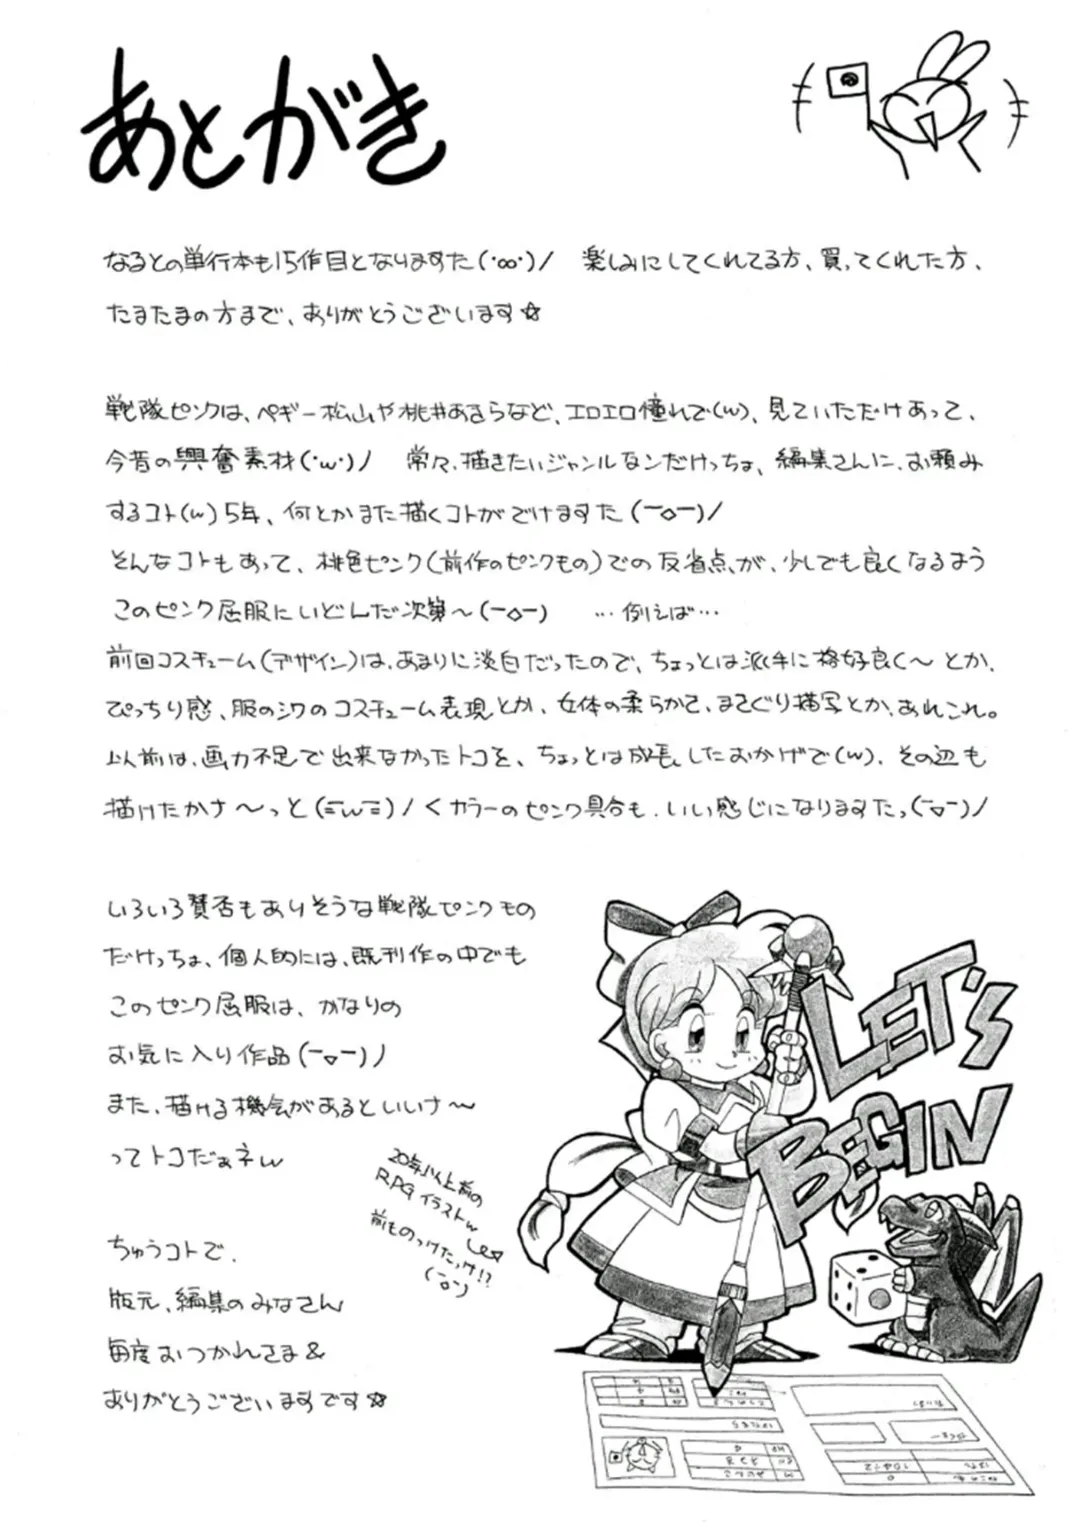 あとがき
なるとの単行本も15作目となりますた(・∞・)/　楽しみにしてくれてる方、買ってくれた方、
たまたまの方まで、ありがとうございます☆
戦隊ピンクは、ペギー松山や桃井あきらなど、エロエロ憧れで(w)、見ていただけあって、
今昔の興奮素材(・w・)ノ　常々、描きたいジャンルなンだけっちょ、編集さんに、お頼み
するコト(w)5年、何とかまた描くコトがでけますた(ー◇ー)/
そんなコトもあって、桃色ピンク(前作のピンクもの)での反省点が、少しでも良くなるよう
このピンク屈服にいどんだ次第〜(ー◇ー)　…例えば…
前回コスチューム(デザイン)は、あまりに淡白だったので、ちょっとは派手に格好良く〜とか、
ぴっちり感、服のシワのコスチューム表現とか、女体の柔らかさ、まさぐり描写とか、あれこれ。
以前は、画力不足で出来なかったトコを、ちょっとは成長したおかげで(w)、その辺も
描けたかナ〜っと(=w=)/くカラーのピンク具合も、いい感じになりますたっ(ー▽ー)/
いろいろ賛否もありそうな戦隊ピンクもの
だけっちょ、個人的には、既刊作の中でも
このピンク屈服は、かなりの
お気に入り作品(ー▽ー)ノ
また、描ける機会があるといいナ〜
ってトコだぁネw
20年以上前の
RPGイラストw
前ものっけたっけ!?
(ー◇ー)
ちゅうコトで、
版元、編集のみなさん
毎度おつかれさま&
ありがとうございますです☆
LET'S
BEGIN